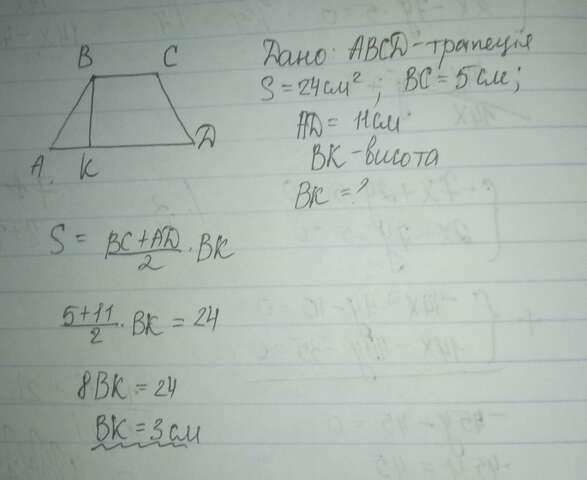 B C
A K D
Дано: ABCD-трапеція
S = 24 см²; BC = 5 см;
AD = 11 см
BK - висота
BK = ?
S = BC + AD / 2 · BK
5+11 / 2 · BK = 24
8BK = 24
BK = 3 см